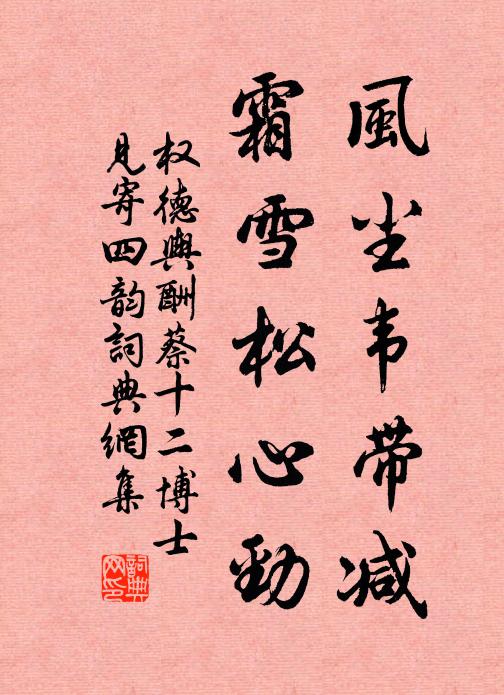 風尘韦带减
霜雪松心勁
权德輿酬蔡十二博士
見寄四韵詞典網集
詞典网印